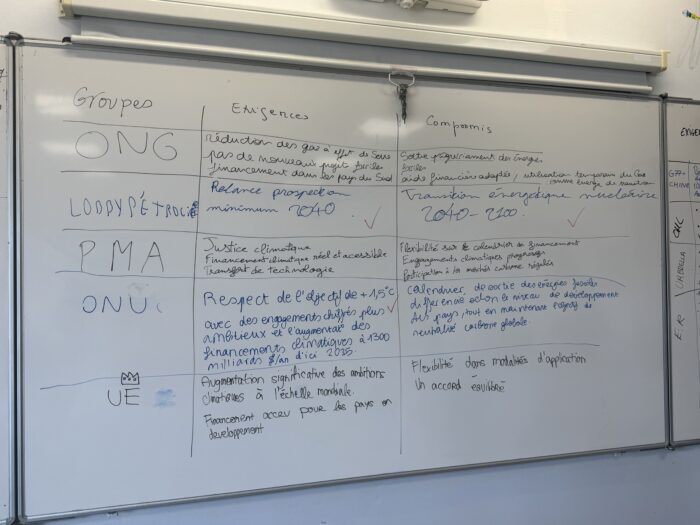 Groupes
Exigences
Compromis
ONG
réduction des gaz à effet de serre
pas de nouveaux projet fossiles
financement dans les pays du Sud
Sortie progressivement des Energies
fossiles
aide financière adaptés / utilisation temporaire du Gaz
comme énergie de transition
LOBBYPÉTROLIÉ
Relance prospection
minimum 2040
Transition énergétique nucléaire
2040-2100
PMA
Justice climatique
Financement climatique réel et accessible
Transfert de technologie
Flexibilité sur le calendrier du financement
Engagements climatiques progressifs
Participation à la marchés carbone régulés
ONU
Respect de l'objectif de +1,5°C
avec des engagements chiffrés plus
ambitieux et l'augmentat° des
financements climatiques à 1300
milliards $/an d'ici 2035.
calendrier de sortie des énergies fossiles
différencié selon le niveau de développement
des pays, tout en maintenant l'objectif de
neutralité carbone globale.
UE
Augmentation significative des ambitions
climatiques à l'échelle mondiale.
Financement accru pour les pays en
developpement
Flexibilité dans modalités d'application
Un accord équilibré
G77+
CHINE